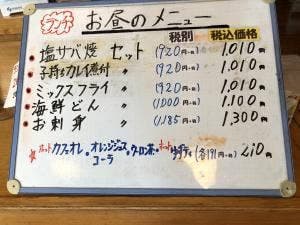 お昼のメニュー
税別 税込価格
塩サバ焼 セット (920円+税) 1,010円
子持ちカレイ煮付 〃 (920円+税) 1,010円
ミックスフライ 〃 (920円+税) 1,010円
海鮮どん 〃 (1,000円+税) 1,100円
お刺身 〃 (1,185円+税) 1,300円
カフェオレ・オレンジジュース・ウーロン茶・ホット
コーラ (各191円+税) 210円